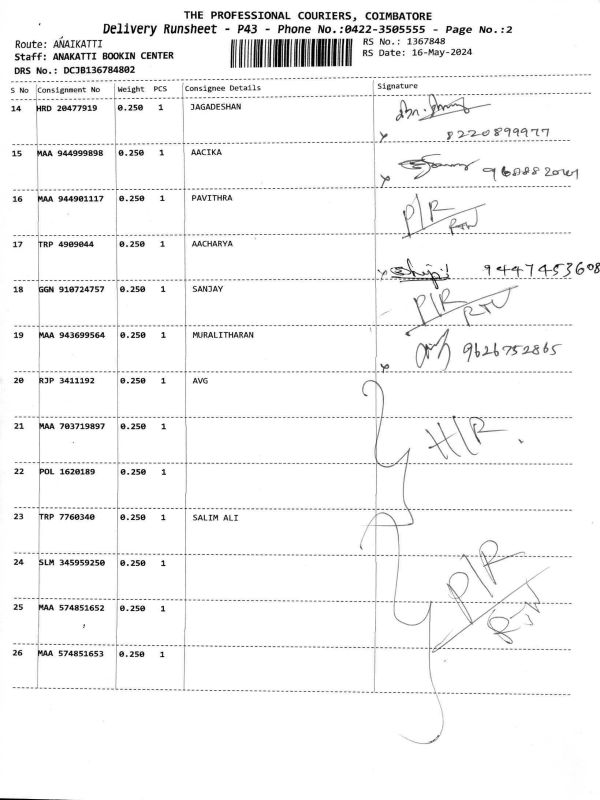 THE PROFESSIONAL COURIERS, COIMBATORE
Delivery Runsheet - P43 - Phone No.:0422-3505555 - Page No.:2
Route: ANAIKATTI
RS No.: 1367848
Staff: ANAKATTI BOOKIN CENTER
RS Date: 16-May-2024
DRS No.: DCJB136784802
S No Consignment No Weight PCS Consignee Details Signature
14 HRD 20477919 0.250 1 JAGADESHAN
x 8220899977
15 MAA 944999898 0.250 1 AACIKA
x
16 MAA 944901117 0.250 1 PAVITHRA P/R
17 TRP 4909044 0.250 1 AACHARYA
x 9447453608
18 GGN 910724757 0.250 1 SANJAY P/R
RTN
19 MAA 943699564 0.250 1 MURALITHARAN
x 9626752865
20 RJP 3411192 0.250 1 AVG
21 MAA 703719897 0.250 1 H/R
22 POL 1620189 0.250 1
23 TRP 7760340 0.250 1 SALIM ALI
24 SLM 345959250 0.250 1 P/R
25 MAA 574851652 0.250 1 RTN
26 MAA 574851653 0.250 1